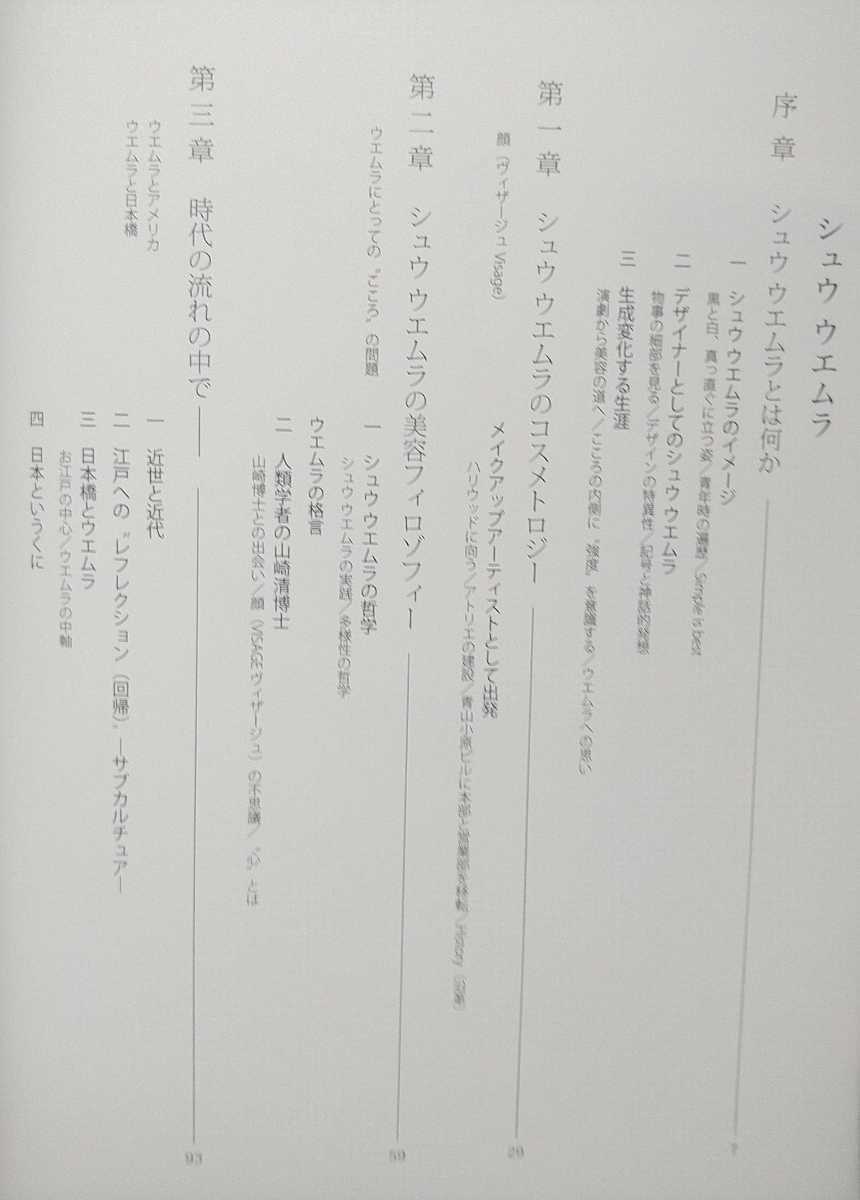 シュウ ウエムラ
序章 シュウ ウエムラとは何か 7
一 シュウ ウエムラのイメージ
黒と白、真っ直ぐに立つ姿／青年時の遍歴／Simple is best
二 デザイナーとしてのシュウ ウエムラ
物事の細部を見る／デザインの特異性／記号と神話的発想
三 生成変化する生涯
演劇から美容の道へ／こころの内側に〝強度〟を意識する／ウエムラへの思い
第一章 シュウ ウエムラのコスメトロジー 29
顔（ヴィザージュ Visage）
メイクアップアーティストとして出発
ハリウッドに向う／アトリエの建設／青山小原ビルに本部と営業部を移転／History（沿革）
第二章 シュウ ウエムラの美容フィロゾフィー 59
ウエムラにとっての〝こころ〟の問題
一 シュウ ウエムラの哲学
シュウ ウエムラの実践／多様性の哲学
ウエムラの格言
二 人類学者の山崎清博士
山崎博士との出会い／顔（VISAGE ヴィザージュ）の不思議／〝心〟とは
第三章 時代の流れの中で―― 93
ウエムラとアメリカ
ウエムラと日本橋
一 近世と近代
二 江戸への〝レフレクション（回帰）〟―サブカルチュア―
三 日本橋とウエムラ
お江戸の中心／ウエムラの中軸
四 日本というくに